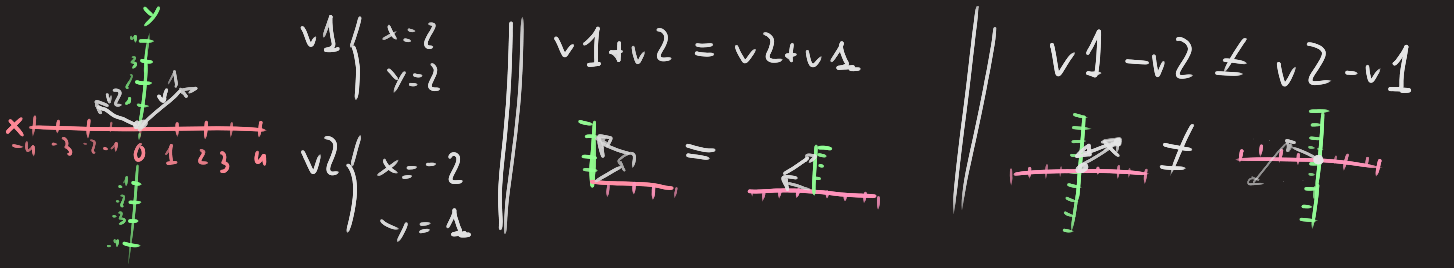 y
4
3
2
1
v2
v1
x
-4 -3 -2 -1 0 1 2 3 4
-1
-2
-3
-4
v1 { x=2
y=2
v2 { x=-2
y=1
v1+v2 = v2+v1
=
v1-v2 ≠ v2-v1
≠